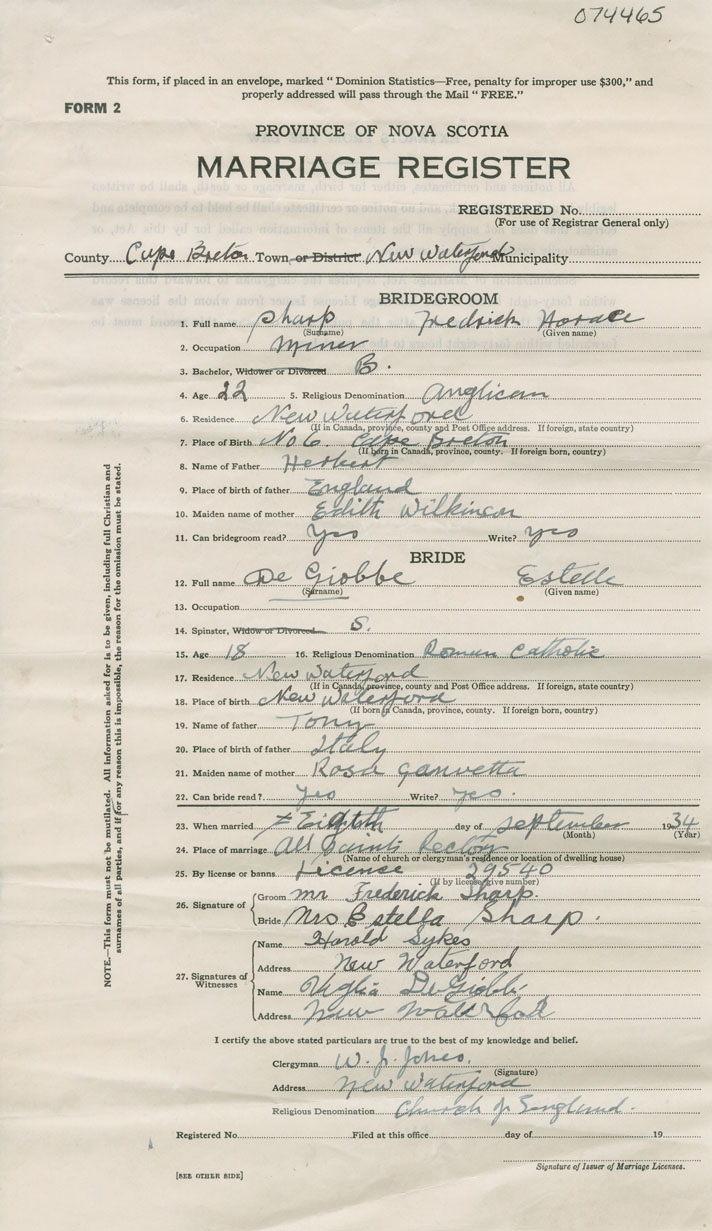 074465
This form, if placed in an envelope, marked " Dominion Statistics—Free, penalty for improper use $300," and
properly addressed will pass through the Mail " FREE."
FORM 2
PROVINCE OF NOVA SCOTIA
MARRIAGE REGISTER
REGISTERED No.
(For use of Registrar General only)
County Cape Breton Town or District New Waterford Municipality
BRIDEGROOM
1. Full name Sharp Fredrick Horace
(Surname) (Given name)
2. Occupation Miner
3. Bachelor, Widower or Divorced B.
4. Age 22 5. Religious Denomination Anglican
6. Residence New Waterford
(If in Canada, province, county and Post Office address. If foreign, state country)
7. Place of Birth No 6. Cape Breton
(If born in Canada, province, county. If foreign born, country)
8. Name of Father Herbert
9. Place of birth of father England
10. Maiden name of mother Edith Wilkinson
11. Can bridegroom read? Yes Write? yes
BRIDE
12. Full name De Giobbe Estelle
(Surname) (Given name)
13. Occupation
14. Spinster, Widow or Divorced S.
15. Age 18 16. Religious Denomination Roman Catholic
17. Residence New Waterford
(If in Canada, province, county and Post Office address. If foreign, state country)
18. Place of birth New Waterford
(If born in Canada, province, county. If foreign born, country)
19. Name of father Tony
20. Place of birth of father Italy
21. Maiden name of mother Rosa
22. Can bride read? Yes Write? yes.
23. When married Eighth day of September 1934
(Month) (Year)
24. Place of marriage All Saints Rectory
(Name of church or clergyman's residence or location of dwelling house)
25. By license or banns License 29540
(If by license, give number)
26. Signature of
Groom Mr Frederick Sharp.
Bride Mrs Estella Sharp.
27. Signatures of Witnesses
Name Harold Sykes
Address New Waterford
Name De Giobbi
Address New Waterford
I certify the above stated particulars are true to the best of my knowledge and belief.
Clergyman W. J. Jones.
(Signature)
Address New Waterford
Religious Denomination Church of England.
Registered No. Filed at this office day of 19
Signature of Issuer of Marriage Licenses.
[SEE OTHER SIDE]
NOTE.—This form must not be mutilated. All information asked for is to be given, including full Christian and
surnames of all parties, and if for any reason this is impossible, the reason for the omission must be stated.